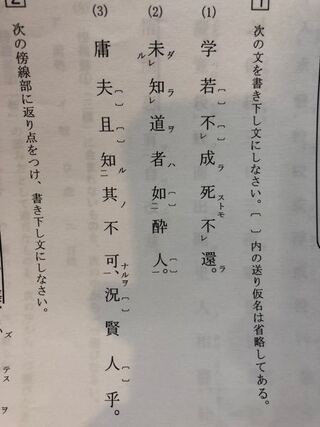 1 次の文を書き下し文にしなさい。〔 〕内の送り仮名は省略してある。
(1) 学若〔 〕不レ成ラ死ストモ不レ還ラ。
(2) 未ダルレ知ラレ道ヲ者ハ如〔 〕二酔人〔 〕一。
(3) 庸夫〔 〕且〔 〕知ル二其ノ不可ナルヲ一、況〔 〕賢人〔 〕乎。
2 次の傍線部に返り点をつけ、書き下し文にしなさい。
ズ テス ヲ